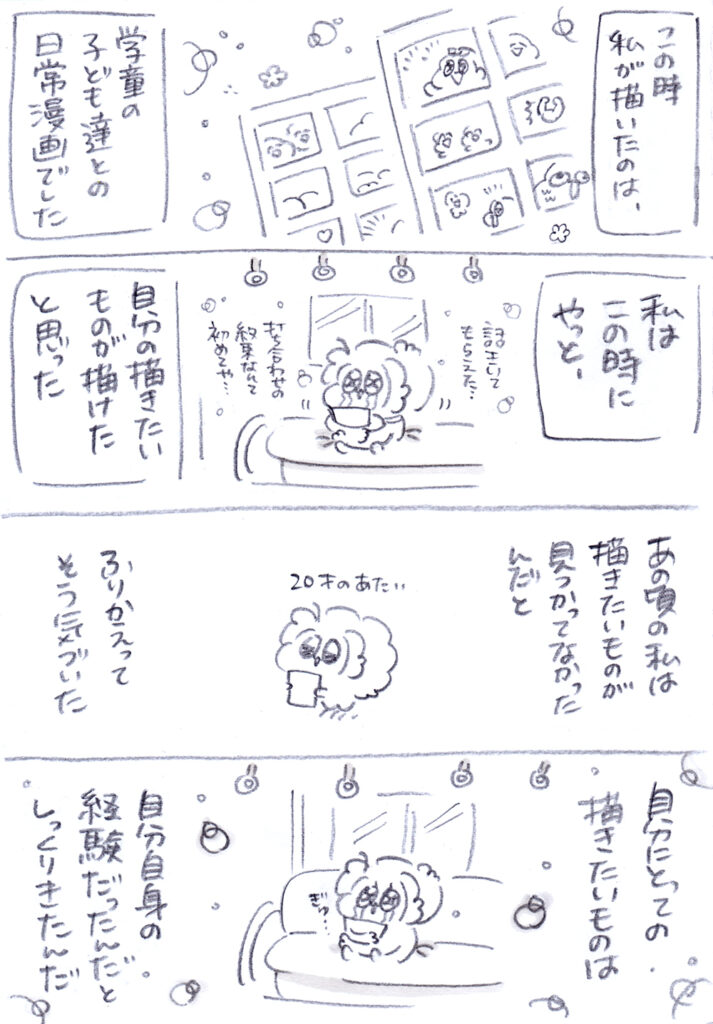 この時
私が描いたのは、
学童の
子ども達との
日常漫画でした
私は
この時に
やっと、
話きいて
もらえた…
打ち合わせの
終末なんて
初めてや…
自分の描きたい
ものが描けた
と思った
あの頃の私は
描きたいものが
見つかってなかった
んだと
20才のあたい
ふりかえって
そう気づいた
自分にとっての
描きたいものは
ぎゅ…
自分自身の
経験だったんだと
しっくりきたんだ